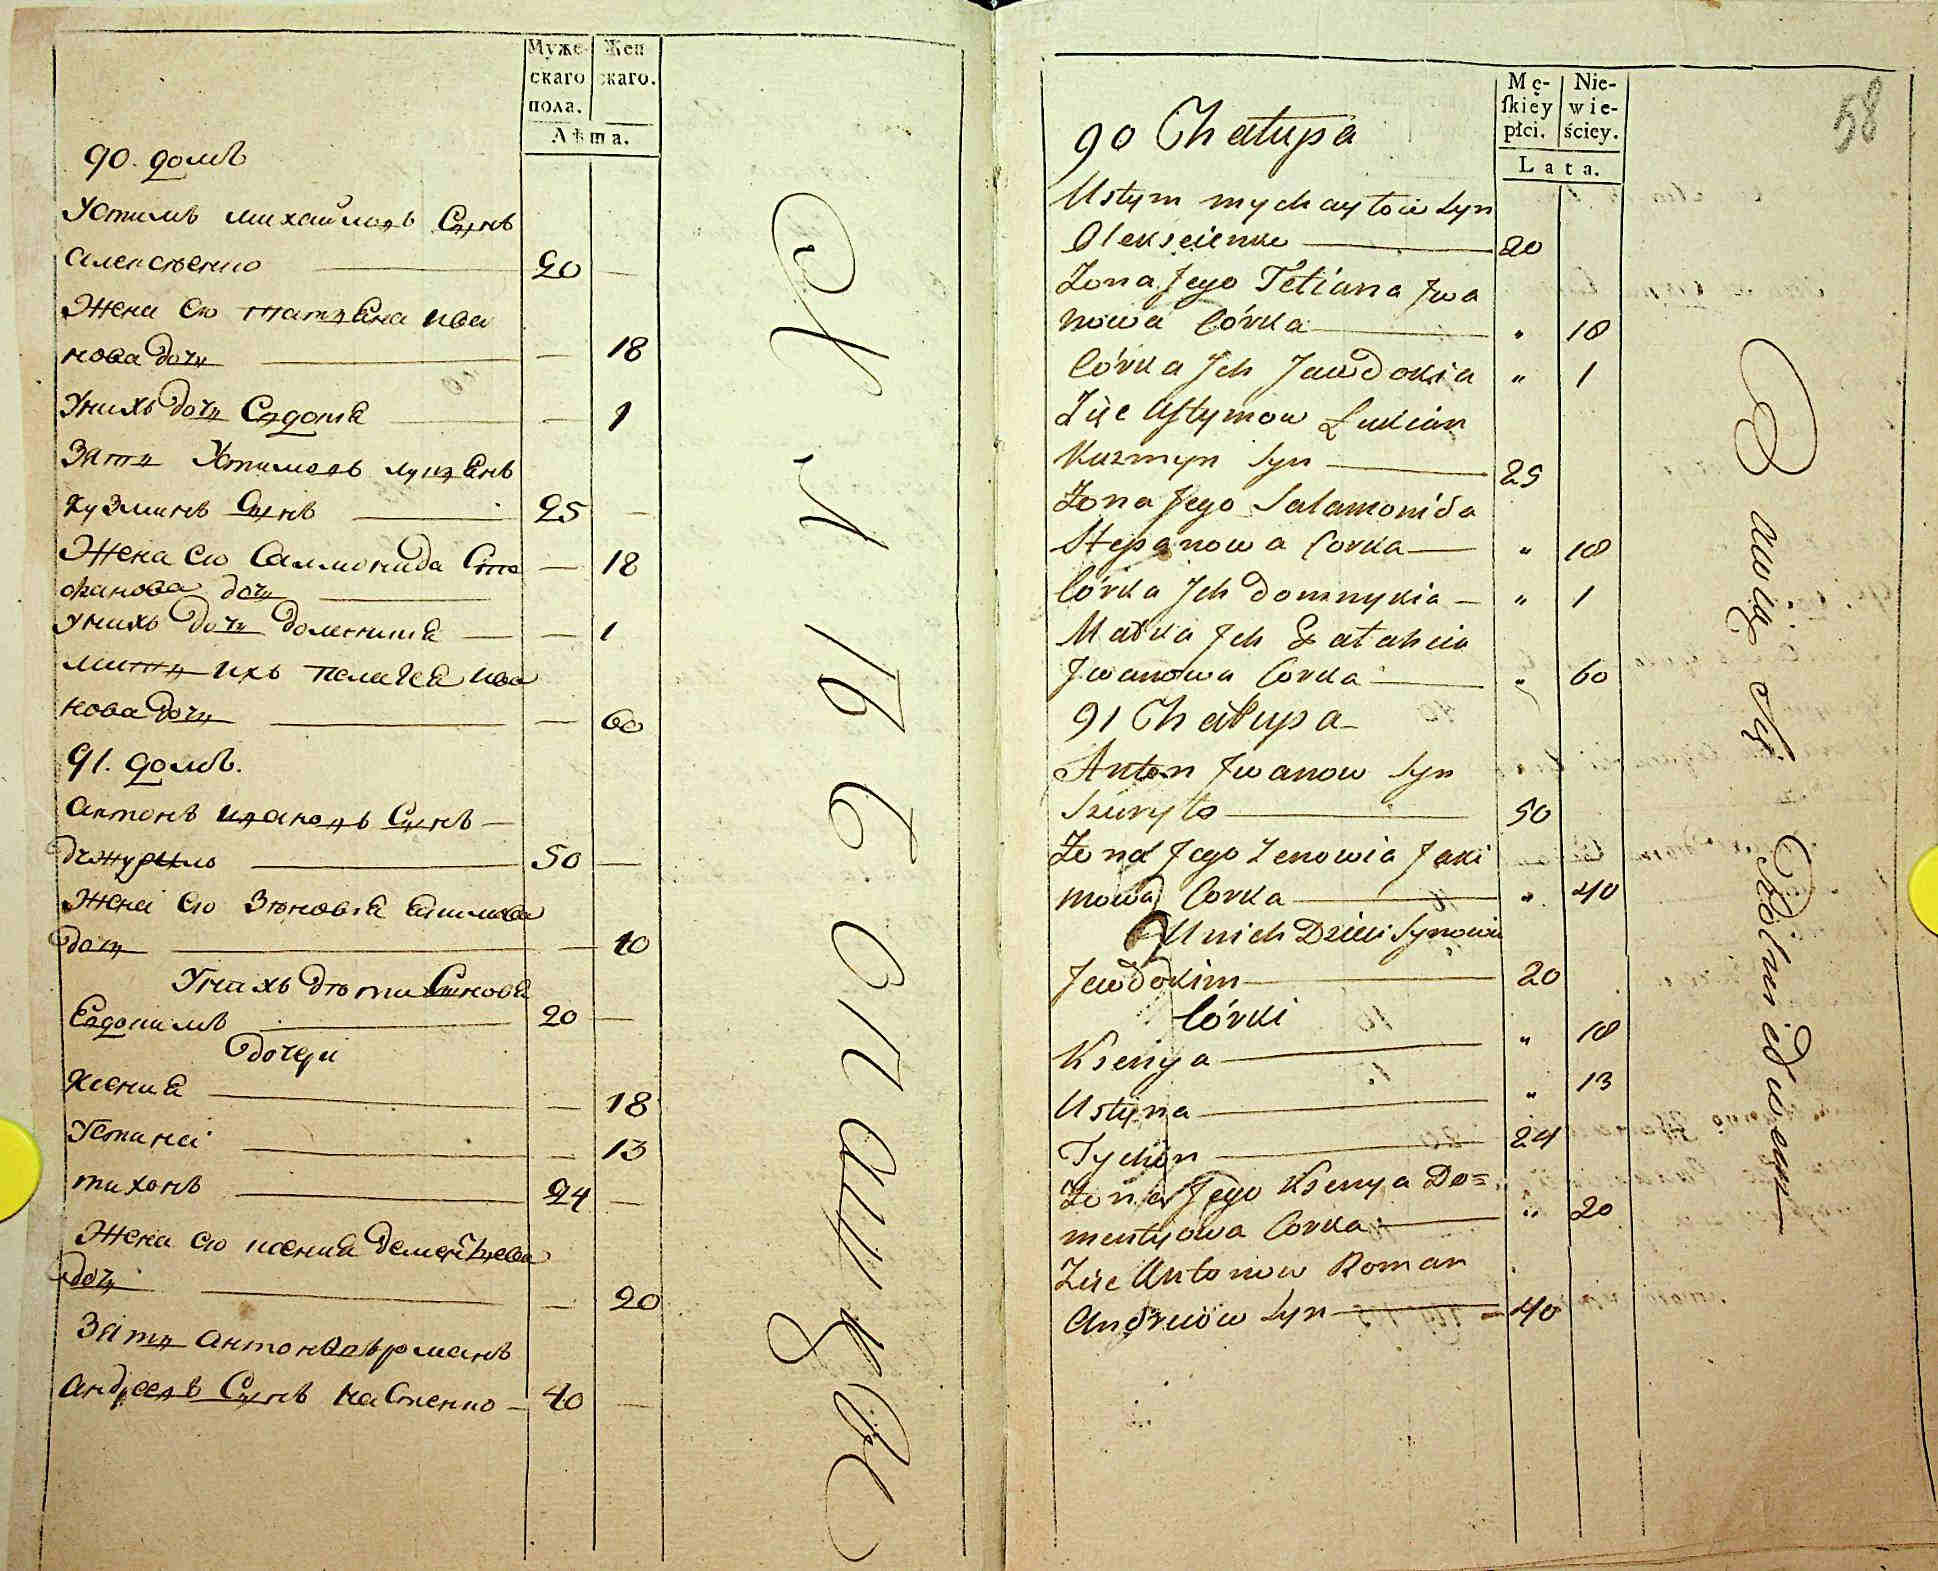 Муже-
скаго
пола.
Жен
скаго.
Лѣта.
90. домъ
Устимъ михайловъ Сынъ
Алексѣенко 20
Жена его татиана ива
нова дочь 18
Унихъ дочь Евдокия 1
Зять Устимовъ лукиянъ
кузминъ Сынъ 25
Жена его Саломонида Сте
фанова дочь 18
Унихъ дочь доменикия 1
мать ихъ пелагея ива
нова дочь 60
91. домъ.
Антонъ ивановъ Сынъ
джурило 50
Жена его Зѣновия акимова
дочь 40
Унихъ дѣти Синовя
Евдокимъ 20
дочери
Ксения 18
Устина 13
тихонъ 24
Жена его ксения дементиева
дочь 20
Зять антоновъ романъ
Андреевъ Сынъ 40
58
Mę-
skiey
płci.
Nie-
wie-
ściey.
Lata.
90 Chałupa
Ustym mychayłow Syn
Olekseienko 20
Żona Jego Tetiana Jwa
nowa Córka " 18
Córka Jch Jawdokia " 1
Zięc Ustymow Łukian
Kuzmyn Syn 25
Żona Jego Salamonida
Stepanowa Corka " 18
Córka Jch Domnykia " 1
Matka Jch Pałaheia
Jwanowa Corka " 60
91 Chałupa
Anton Jwanow Syn
Dzuryło 50
Żona Jego Zenowia Jaki
mowa Corka " 40
U nich Dzieci Synowie
Jewdokim 20
Córki
Ksenya " 18
Ustyna " 13
Tychon 24
Żona Jego Ksenya De=
mentyowa Corka " 20
Zięc Antonow Roman
Andreiow Syn 40